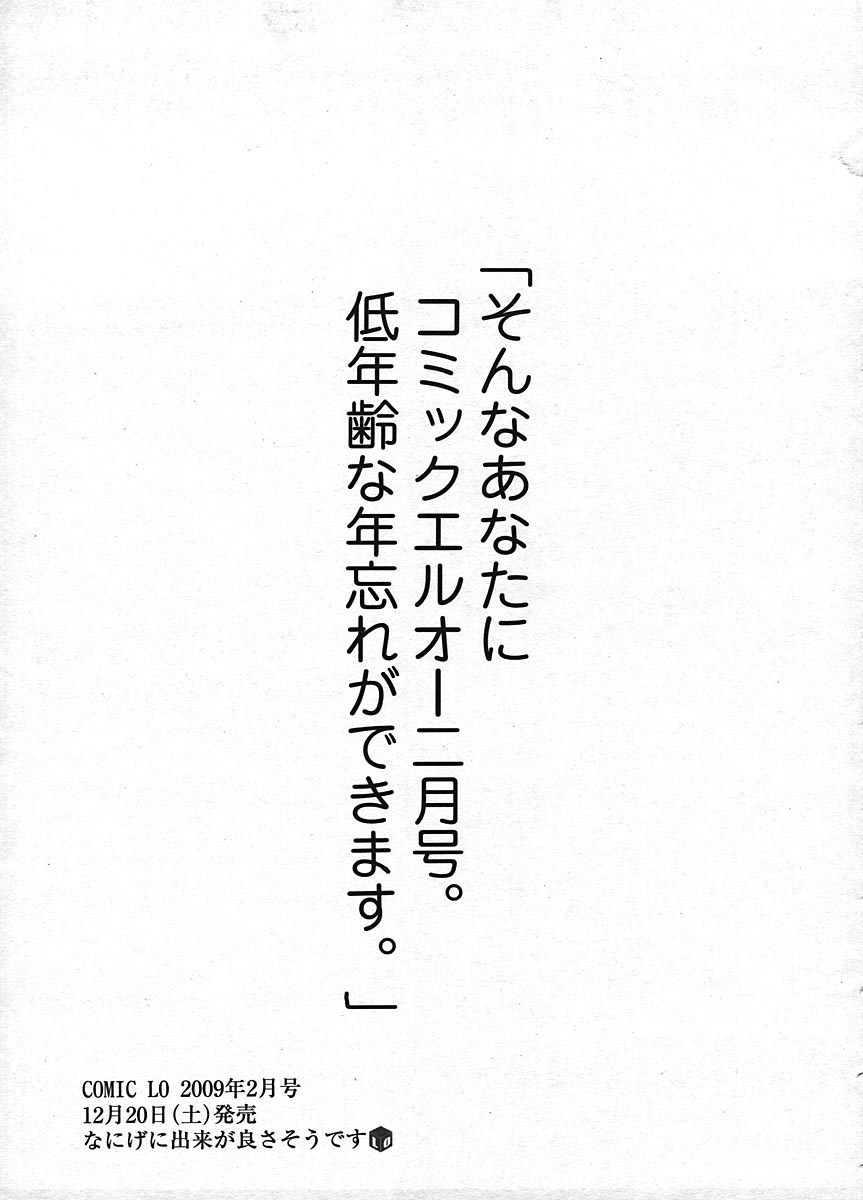 「そんなあなたに
コミックエルオー二月号。
低年齢な年忘れができます。」
COMIC LO 2009年2月号
12月20日(土)発売
なにげに出来が良さそうです LO